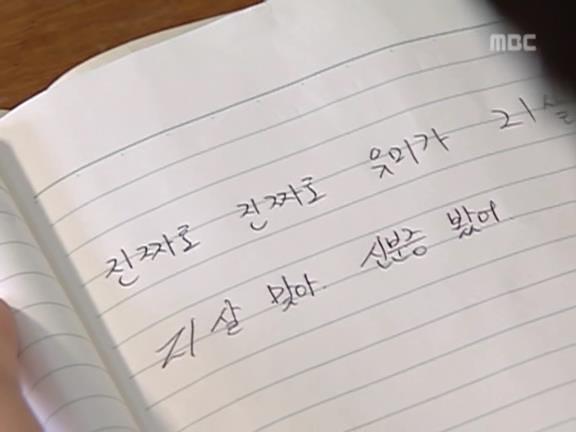 MBC
진짜로 진짜로 21살
21살 맞아. 신분증 봤어.